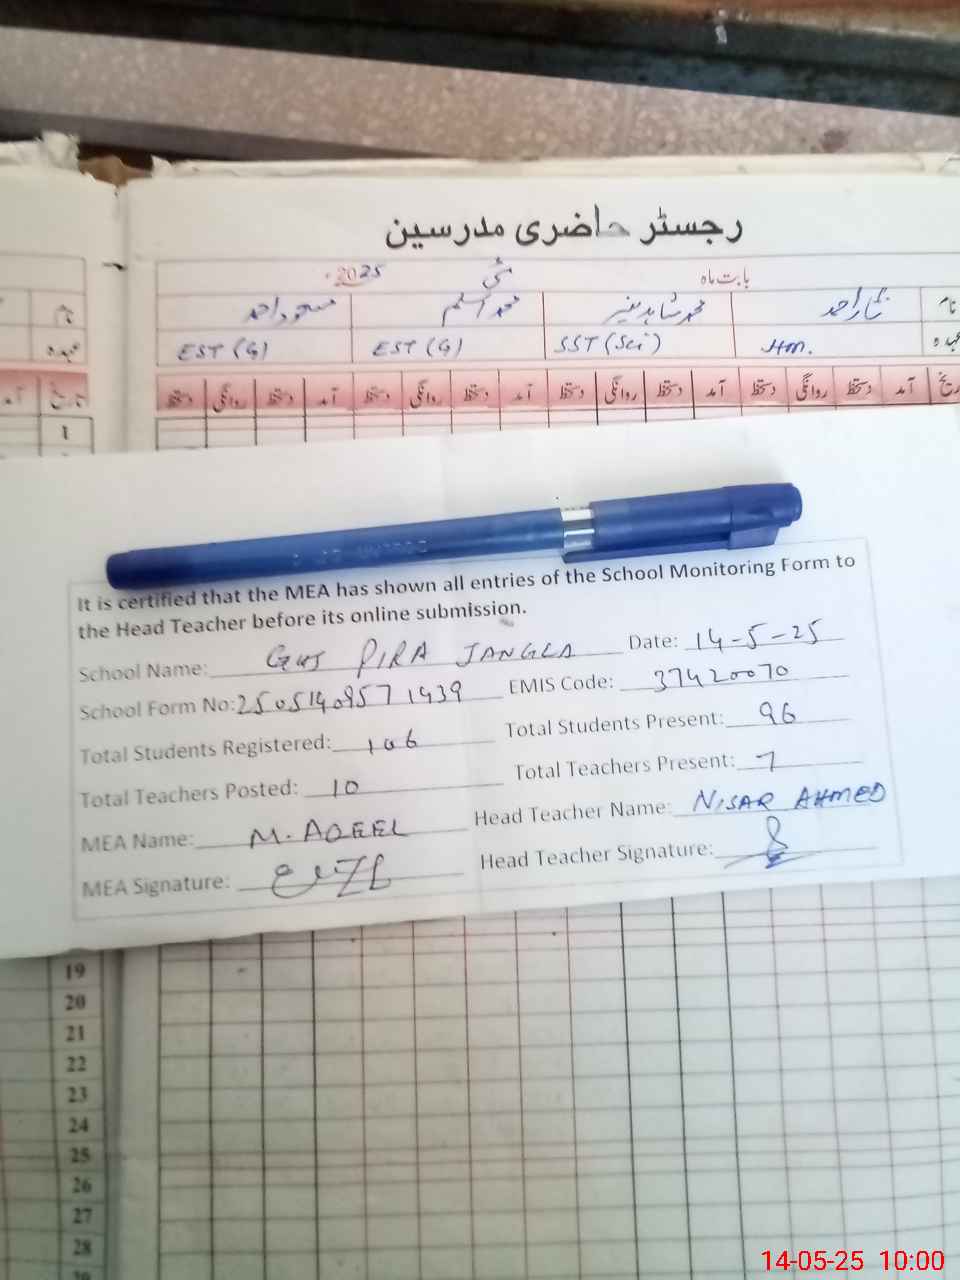 رجسٹر حاضری مدرسین
بابت ماہ مئی 2025
نام نثار احمد محمد شاہد منیر محمد اسلم مسعود احمد نام
عہدہ HM. SST (Sci) EST (G) EST (G) عہدہ
تاریخ آمد دستخط روانگی دستخط آمد دستخط روانگی دستخط آمد دستخط روانگی دستخط آمد دستخط روانگی دستخط تاریخ آمد
1
It is certified that the MEA has shown all entries of the School Monitoring Form to
the Head Teacher before its online submission.
School Name: GHS PIRA JANGLA Date: 14-5-25
School Form No: 25051409571439 EMIS Code: 37420070
Total Students Registered: 106 Total Students Present: 96
Total Teachers Posted: 10 Total Teachers Present: 7
MEA Name: M. AQEEL Head Teacher Name: NISAR AHMED
MEA Signature: Head Teacher Signature:
19
20
21
22
23
24
25
26
27
28
14-05-25 10:00